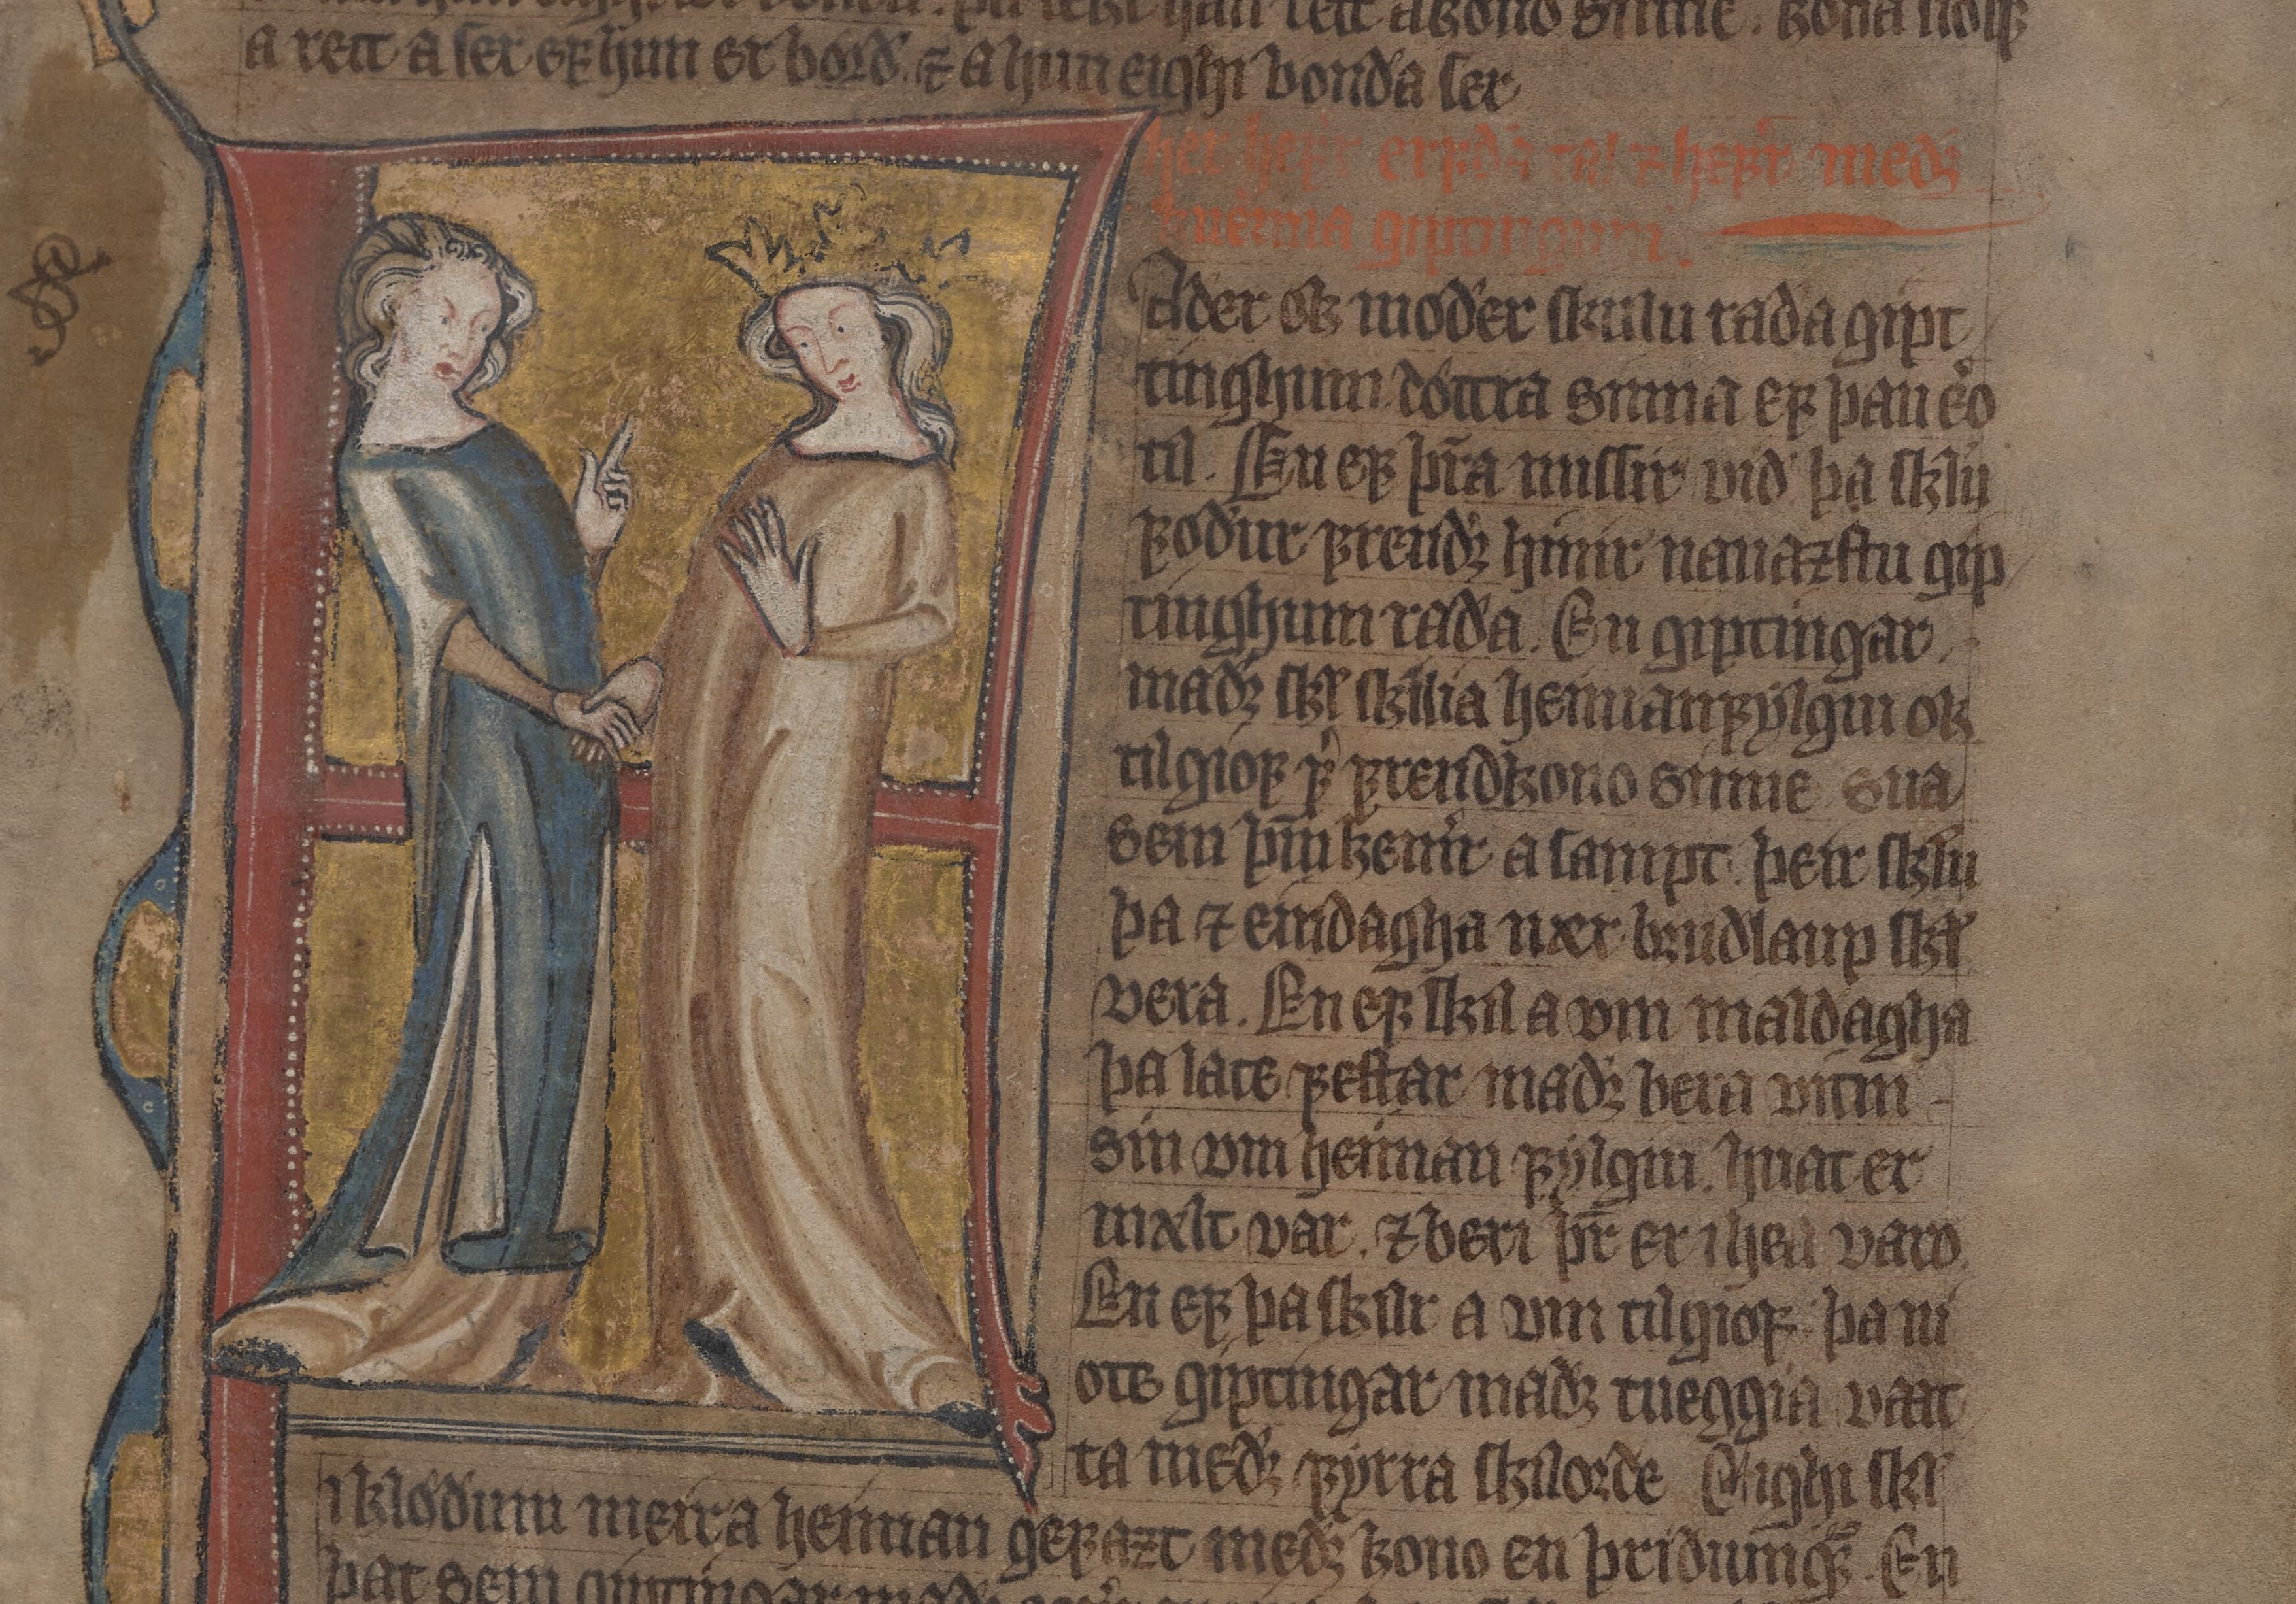 a rett a ser ef hun er borđ. ⁊ a hun eighi bonda ser
her hefr erfđa tal ⁊ hefr međꝫ
kuenna giptingum.
Ader ok moder skulu rađa gipt
tinghum dottra sinna ef þau ero
til. En ef þrͣa missir viđ þa sklu
fođur frendꝫ hinir nanaztu gip
tinghum rađa. En giptingar
mađꝫ skl skilia heimanfylgiu ok
tilgiof v̓ frendkono sinne sua
sem þm̄ kemr a sampt. þeir sklu
þa ⁊ eindagha nær brudlaup skl
vera. En ef skil a vm maldagha
þa late festar mađꝫ bera vitni
sin vm heiman fylgiu. huat er
mælt var. ⁊ beri þr̄ er i hea varo.
En ef þa skilr a vm tilgiof þa ni
ote giptingar mađꝫ tueggia vaat
ta međꝫ fyrra skilorđe Eighi skl
i klođum meira heiman gefazt međꝫ kono en þriđium̄g̃. En
þat sem giptingar mađꝫ